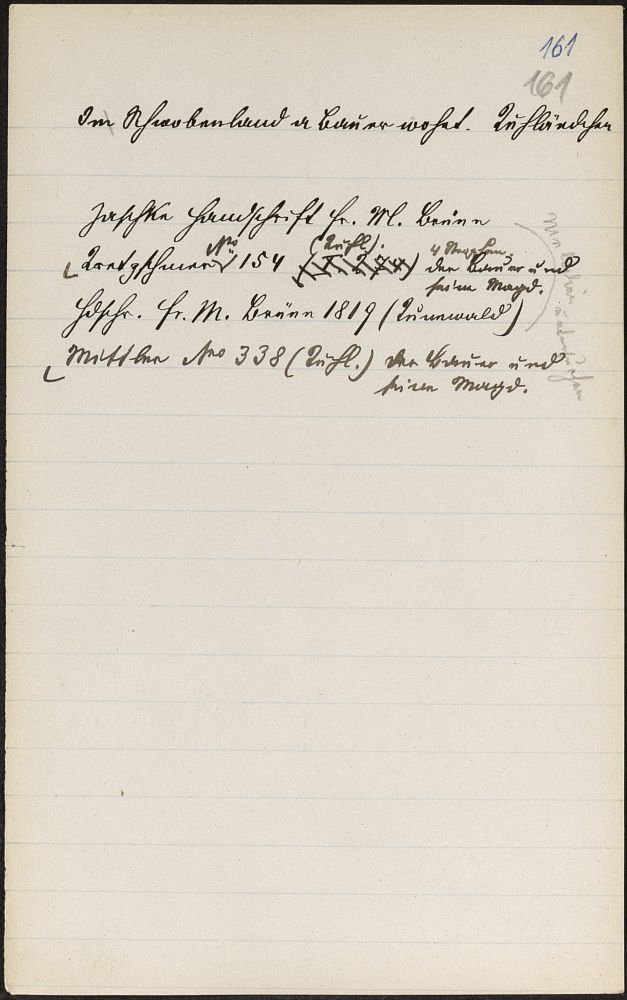 161
161
Im Schwobenland a Bauer wohnt. Kuhländchen
Jaschke Handschrift fr. M. Brünn
Kretzschmer No 154 (Kuhl). 4 Strophen, der Bauer und seine Magd.
Hdschr. fr. M. Brünn 1819 (Kunewald)
Mittler No 338 (Kuhl.) der Bauer und
seine Magd.